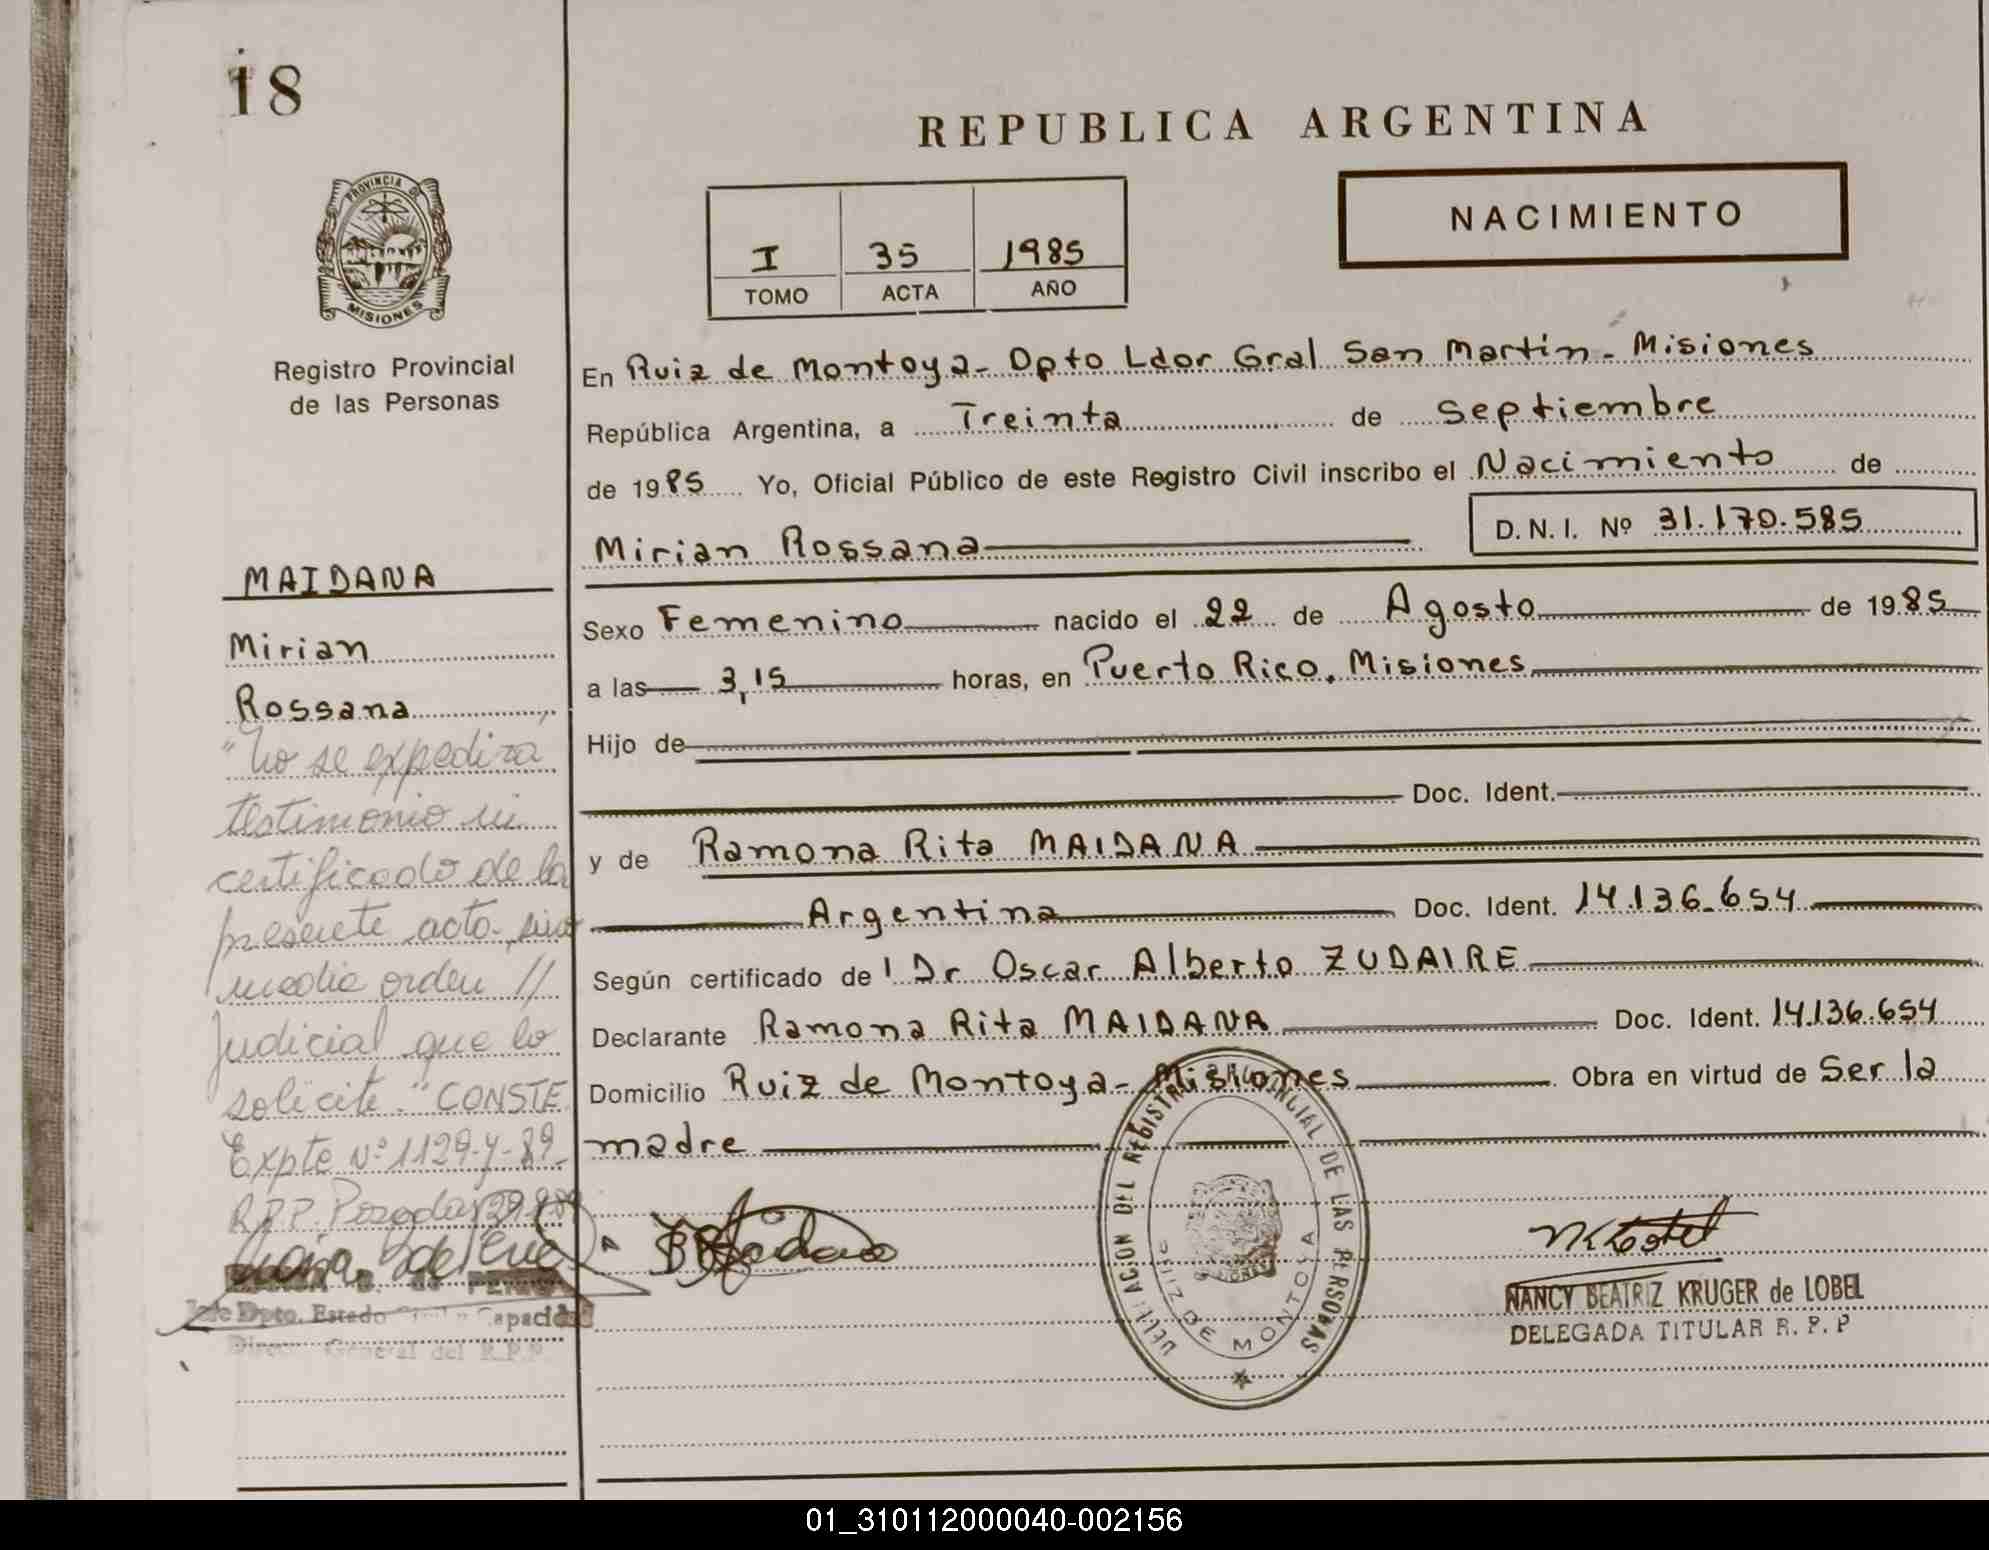 18
REPUBLICA ARGENTINA
PROVINCIA DE
MISIONES
Registro Provincial
de las Personas
I 35 1985
TOMO ACTA AÑO
NACIMIENTO
En Ruiz de Montoya - Dpto Ldor Gral San Martin - Misiones
República Argentina, a Treinta de Septiembre
de 1985 Yo, Oficial Público de este Registro Civil inscribo el Nacimiento de
Mirian Rossana D. N. I. Nº 31.170.585
Sexo Femenino nacido el 22 de Agosto de 1985
a las 3,15 horas, en Puerto Rico. Misiones
Hijo de
Doc. Ident.
y de Ramona Rita MAIDANA
Argentina Doc. Ident. 14.136.654
Según certificado de Dr Oscar Alberto ZUDAIRE
Declarante Ramona Rita MAIDANA Doc. Ident. 14.136.654
Domicilio Ruiz de Montoya - Misiones Obra en virtud de Ser la
madre
MAIDANA
Mirian
Rossana
"No se expedira
testimonio ni
certificado de la
presente acta, sino
media orden //
Judicial que lo
solicite." CONSTE
Expte Nº 1129-Y-89-
R.P.P. Posadas
Jefe Dpto. Estado Capacidad
General del R.P.P.
DELEGACION DEL REGISTRO PROVINCIAL DE LAS PERSONAS
RUIZ DE MONTOYA
NANCY BEATRIZ KRUGER de LOBEL
DELEGADA TITULAR R. P. P
01_310112000040-002156